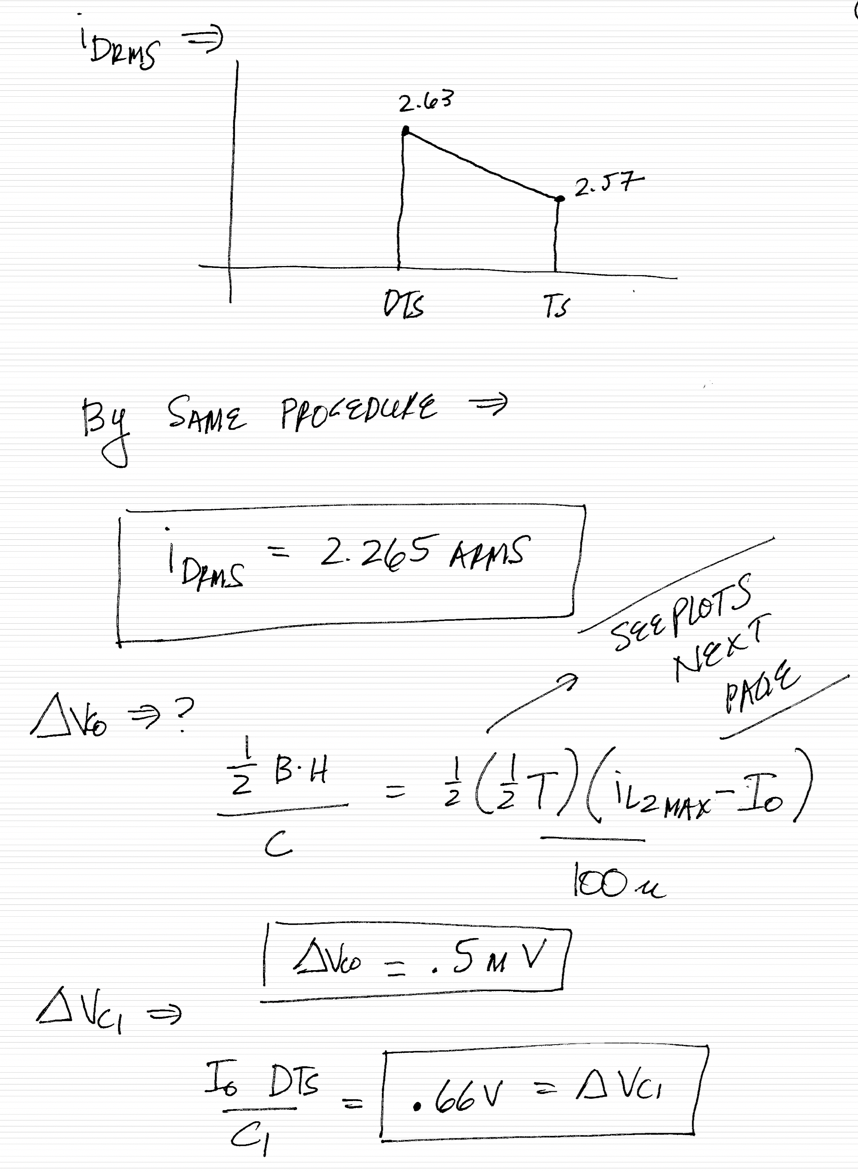 iDRMS ⇒
2.63
2.57
DTS
TS
By SAME PROCEDURE ⇒
iDRMS = 2.265 ARMS
SEE PLOTS
NEXT
PAGE
ΔVCO ⇒ ?
1/2 B·H / C = 1/2 (1/2 T)(iL2MAX - IO) / 100u
ΔVCO = .5 M V
ΔVC1 ⇒
IO DTS / C1 = .66V = ΔVC1